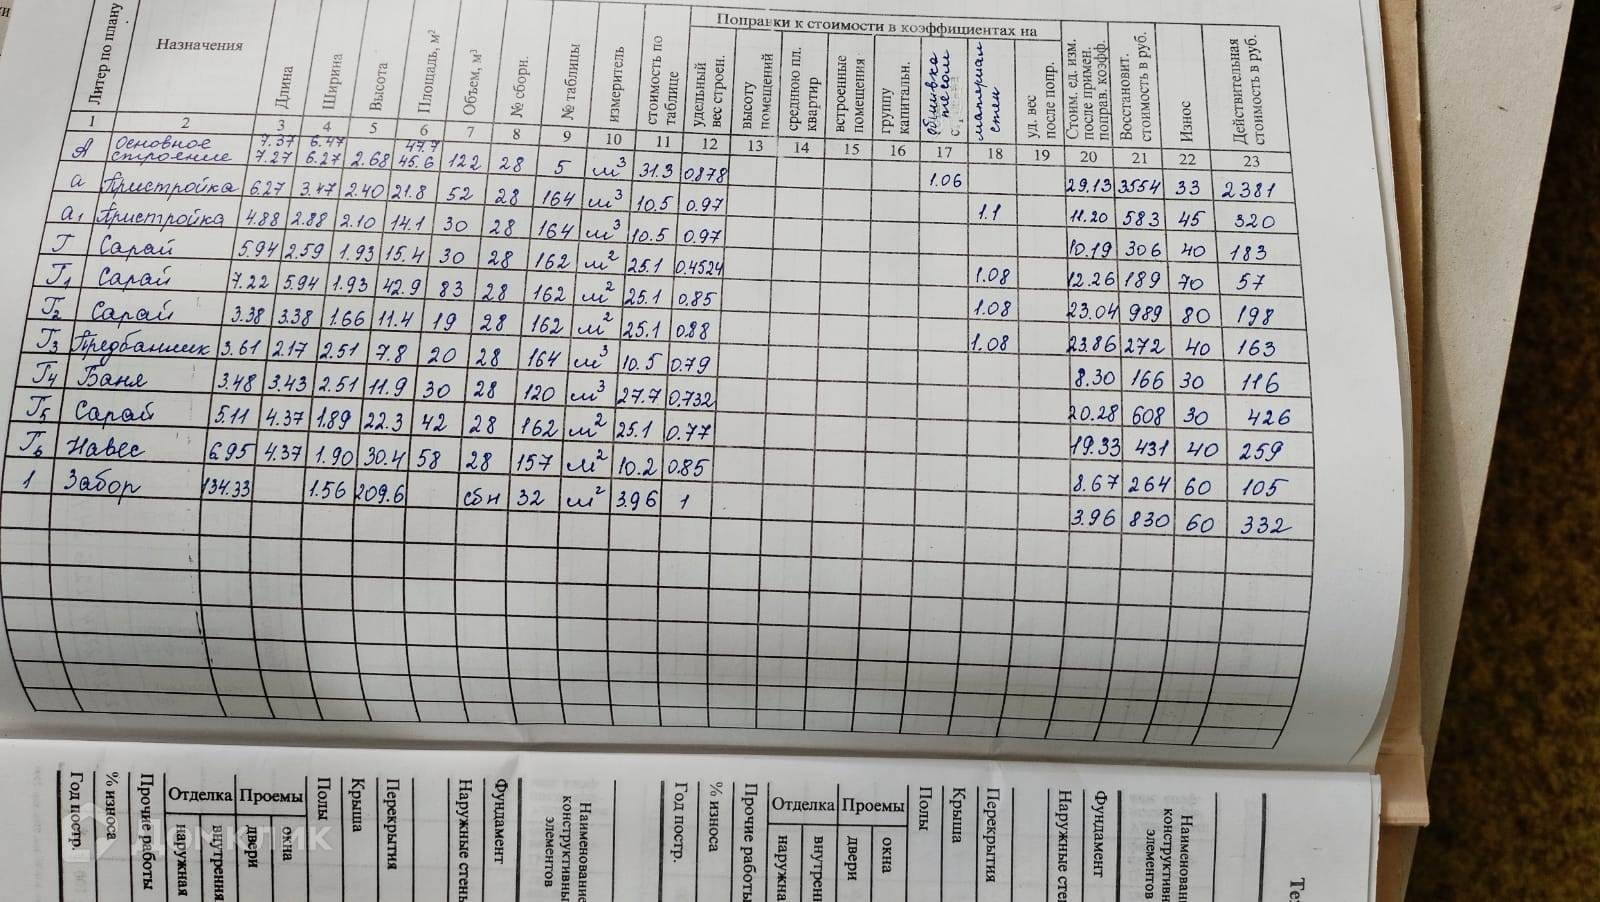 Литер по плану
Назначения
Длина
Ширина
Высота
Площадь, м²
Объем, м³
№ сборн.
№ таблицы
измеритель
стоимость по таблице
Поправки к стоимости в коэффициентах на
удельный вес строен.
высоту помещений
среднюю пл. квартир
встроенные помещения
группу капитальн.
обшивка тесом
материал стен
уд. вес после попр.
Стоим. ед. изм. после примен. поправ. коэфф.
Восстановит. стоимость в руб.
Износ
Действительная стоимость в руб.
1 2 3 4 5 6 7 8 9 10 11 12 13 14 15 16 17 18 19 20 21 22 23
7.37 6.47 47.7
А Основное строение 7.27 6.27 2.68 45.6 122 28 5 м³ 31.3 0.878 1.06 29.13 3554 33 2381
а Пристройка 6.27 3.47 2.40 21.8 52 28 164 м³ 10.5 0.97 1.1 11.20 583 45 320
а1 Пристройка 4.88 2.88 2.10 14.1 30 28 164 м³ 10.5 0.97 10.19 306 40 183
Г Сарай 5.94 2.59 1.93 15.4 30 28 162 м² 25.1 0.4524 1.08 12.26 189 70 57
Г1 Сарай 7.22 5.94 1.93 42.9 83 28 162 м² 25.1 0.85 1.08 23.04 989 80 198
Г2 Сарай 3.38 3.38 1.66 11.4 19 28 162 м² 25.1 0.88 1.08 23.86 272 40 163
Г3 Предбанник 3.61 2.17 2.51 7.8 20 28 164 м³ 10.5 0.79 8.30 166 30 116
Г4 Баня 3.48 3.43 2.51 11.9 30 28 120 м³ 27.7 0.732 20.28 608 30 426
Г5 Сарай 5.11 4.37 1.89 22.3 42 28 162 м² 25.1 0.77 19.33 431 40 259
Г6 Навес 6.95 4.37 1.90 30.4 58 28 157 м² 10.2 0.85 8.67 264 60 105
1 Забор 134.33 1.56 209.6 сбн 32 м² 3.96 1 3.96 830 60 332
Год постр.
% износа
Прочие работы
Отделка
наружная
внутрення
Проемы
двери
окна
Полы
Крыша
Перекрытия
Наружные стень
Фундамент
Наименование
конструктивны
элементов
Год постр.
% износа
Прочие работы
Отделка
наружна
внутрен
Проемы
двери
окна
Полы
Крыша
Перекрытия
Наружные сте
Фундамент
Наименован
конструктив
элементов
Те
Домклик